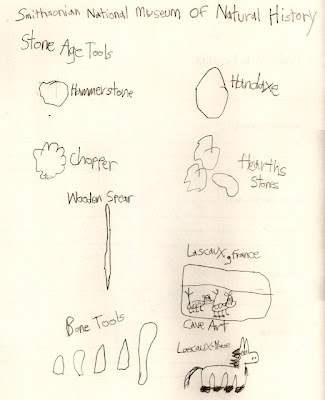 Smithsonian National Museum Of Natural History
Stone Age Tools
Hammerstone
Handaxe
Chopper
Hearths
Stones
Wooden Spear
Lascaux, france
Cave Art
Bone Tools
Lascaux-Horse